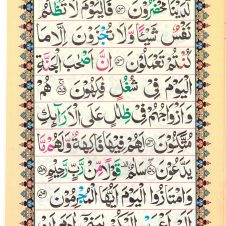 لَدَيْنَا مُحْضَرُوْنَ ﴿٥٣﴾ فَالْيَوْمَ لَا تُظْلَمُ
نَفْسٌ شَيْئًا وَّلَا تُجْزَوْنَ اِلَّا مَا
كُنْتُمْ تَعْمَلُوْنَ ﴿٥٤﴾ اِنَّ اَصْحٰبَ الْجَنَّةِ
الْيَوْمَ فِيْ شُغُلٍ فٰكِهُوْنَ ﴿٥٥﴾ هُمْ
وَاَزْوَاجُهُمْ فِيْ ظِلٰلٍ عَلَى الْاَرَآئِكِ
مُتَّكِـُٔوْنَ ﴿٥٦﴾ لَهُمْ فِيْهَا فَاكِهَةٌ وَّلَهُمْ مَّا
يَدَّعُوْنَ ﴿٥٧﴾ سَلٰمٌ قَوْلًا مِّنْ رَّبٍّ رَّحِيْمٍ ﴿٥٨﴾
وَامْتَازُوا الْيَوْمَ اَيُّهَا الْمُجْرِمُوْنَ ﴿٥٩﴾